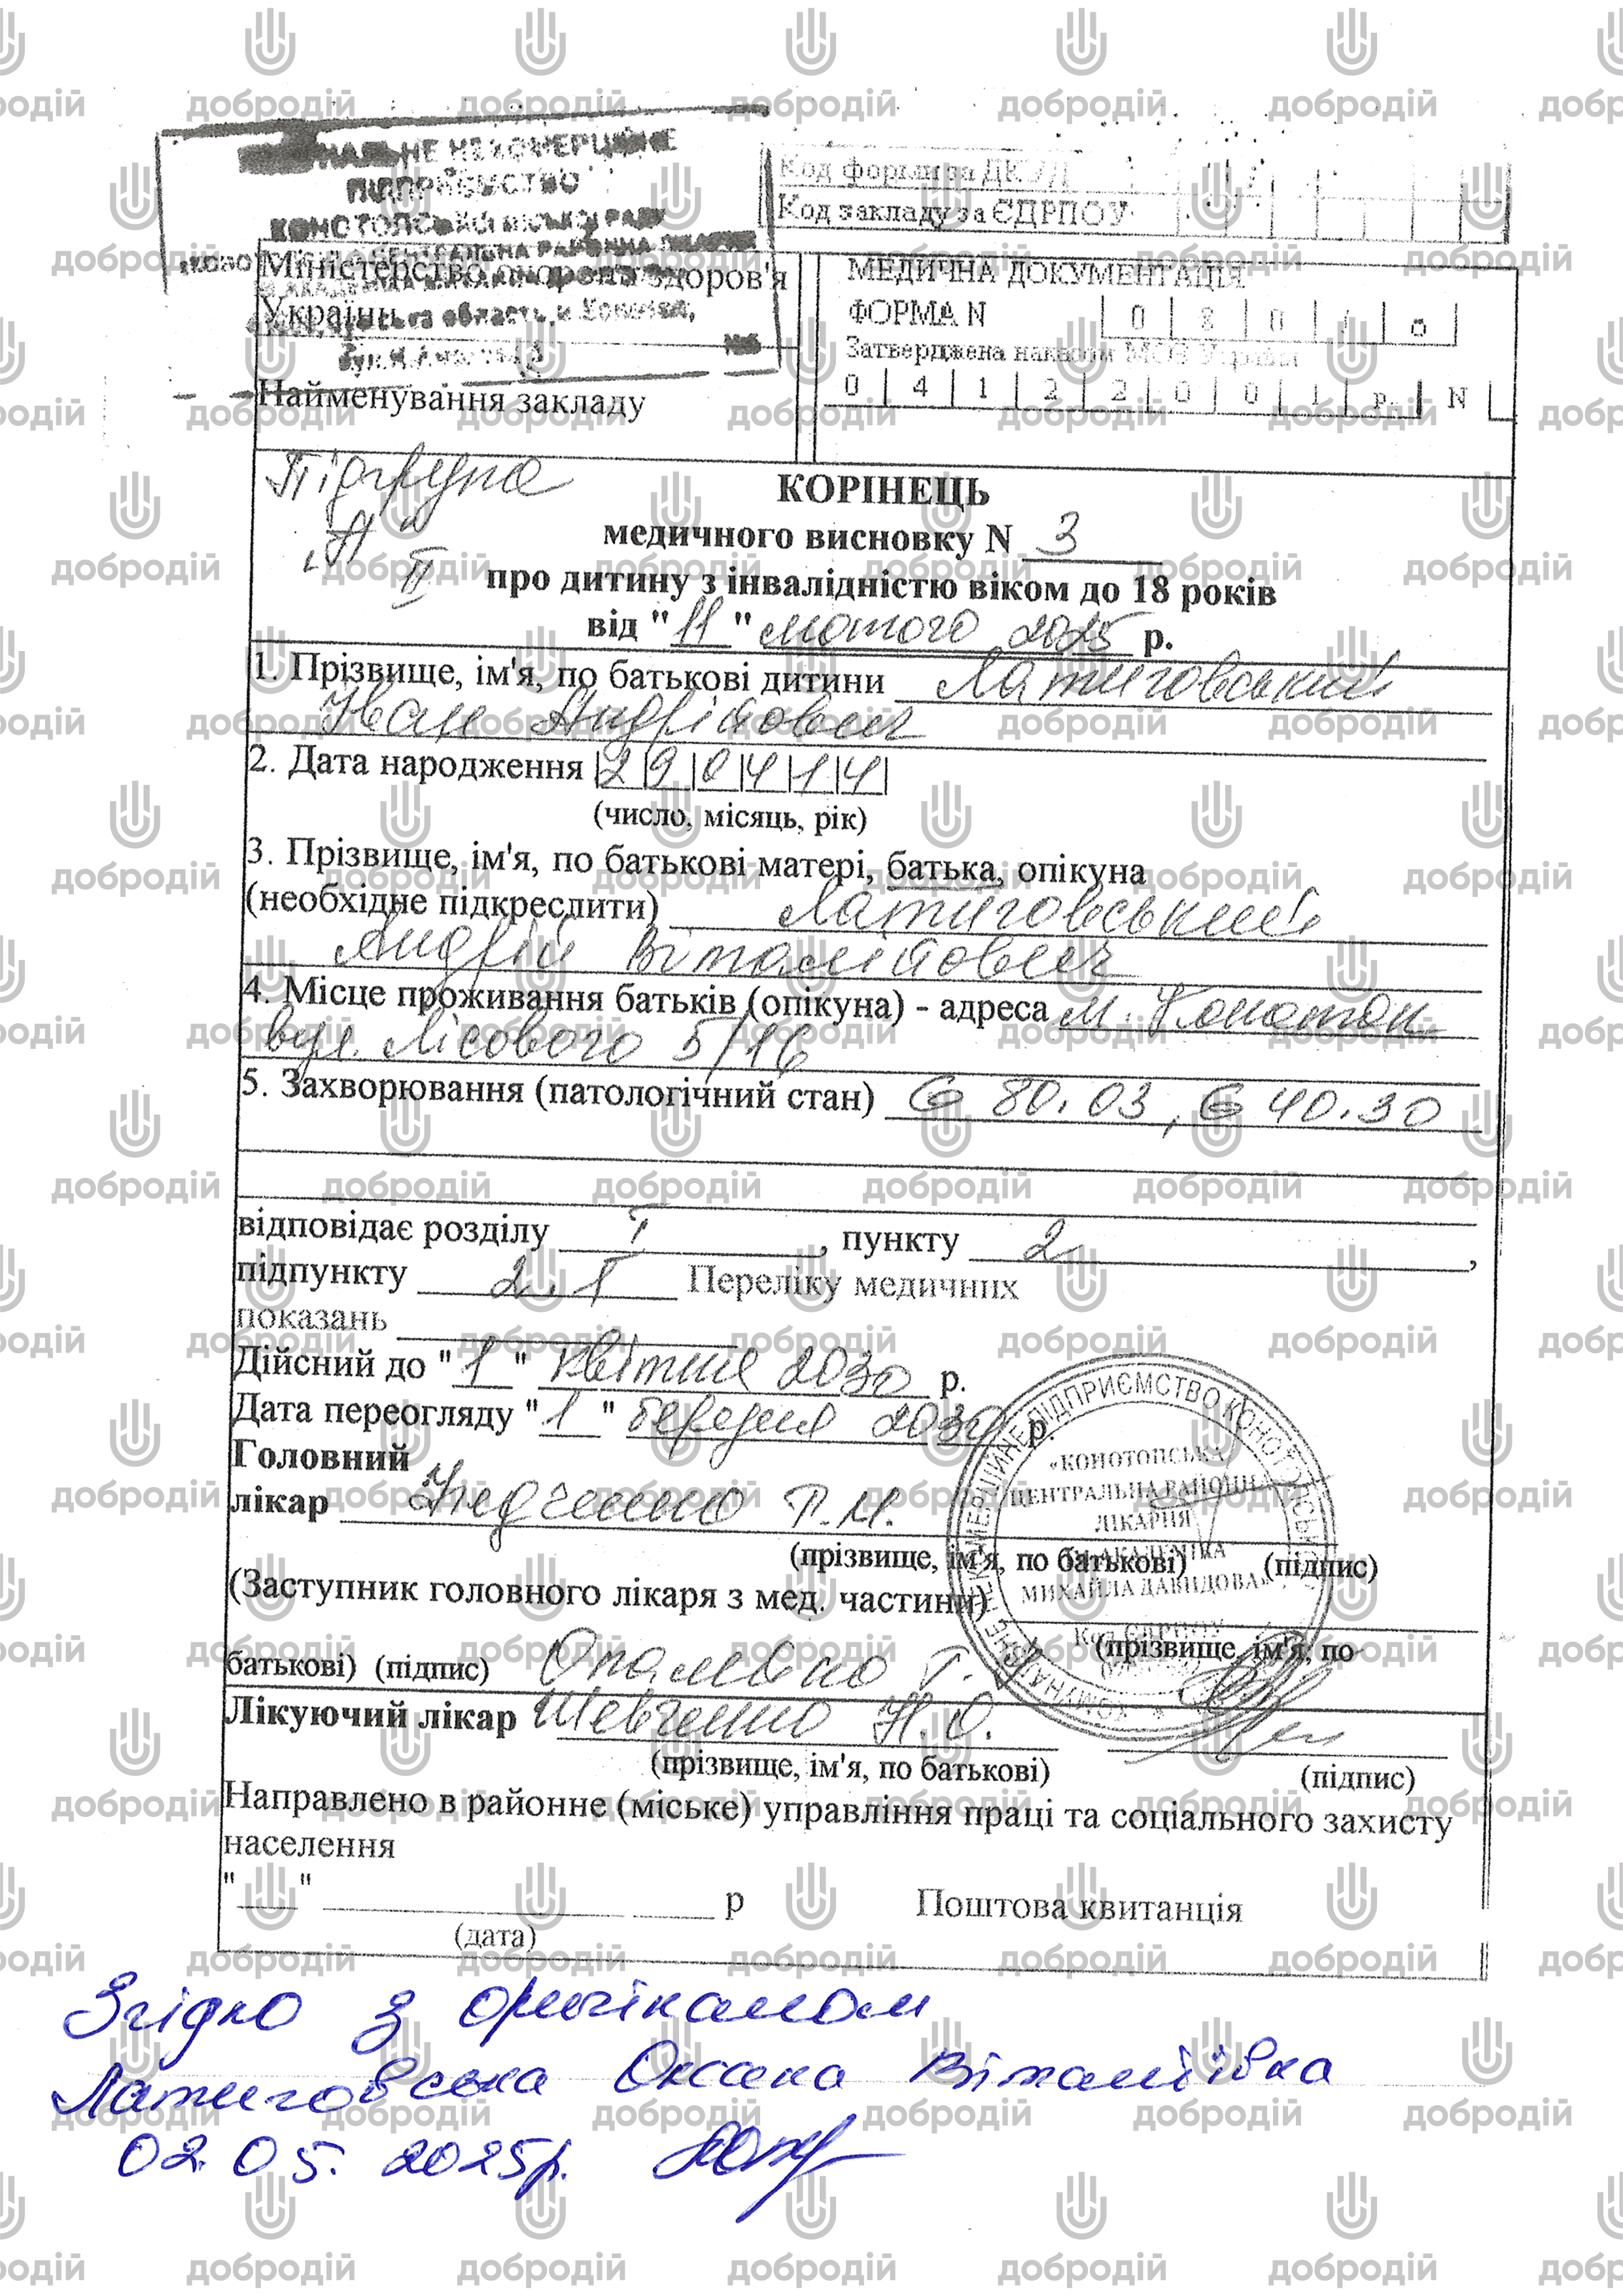 КОМУНАЛЬНЕ НЕКОМЕРЦІЙНЕ
ПІДПРИЄМСТВО
КОНОТОПСЬКОЇ МІСЬКОЇ РАДИ
ЦЕНТРАЛЬНА РАЙОННА ЛІКАРНЯ
Код форми за ДКУД
Код закладу за ЄДРПОУ
Міністерство охорони здоров'я
України
Найменування закладу
МЕДИЧНА ДОКУМЕНТАЦІЯ
ФОРМА N 0 8 0 / о
Затверджена наказом МОЗ України
0 4 1 2 2 0 0 1 р. N
Підгрупа
"А" II
КОРІНЕЦЬ
медичного висновку N 3
про дитину з інвалідністю віком до 18 років
від "11" лютого 2025 р.
1. Прізвище, ім'я, по батькові дитини Латиговський
Іван Андрійович
2. Дата народження |2|9|0|4|1|4|
(число, місяць, рік)
3. Прізвище, ім'я, по батькові матері, батька, опікуна
(необхідне підкреслити) Латиговський
Андрій Віталійович
4. Місце проживання батьків (опікуна) - адреса м. Конотоп
вул. Лісового 5/16
5. Захворювання (патологічний стан) G 80.03, G 40.30
відповідає розділу I, пункту 2,
підпункту 2.1 Переліку медичних
показань
Дійсний до "1" квітня 2030 р.
Дата переогляду "1" березня 2030 р
Головний
лікар Т.М.
(прізвище, ім'я, по батькові) (підпис)
(Заступник головного лікаря з мед. частини)
(прізвище, ім'я, по
батькові) (підпис) Опалєнко Т.
Лікуючий лікар Шевченко Н.О.
(прізвище, ім'я, по батькові) (підпис)
«КОНОТОПСЬКА
ЦЕНТРАЛЬНА РАЙОННА
ЛІКАРНЯ
АКАДЕМІКА
МИХАЙЛА ДАВИДОВА»
Код ЄДРПОУ
Направлено в районне (міське) управління праці та соціального захисту
населення
"___" р Поштова квитанція
(дата)
Згідно з оригіналом
Латиговська Оксана Віталіївна
02.05.2025р.
добродій